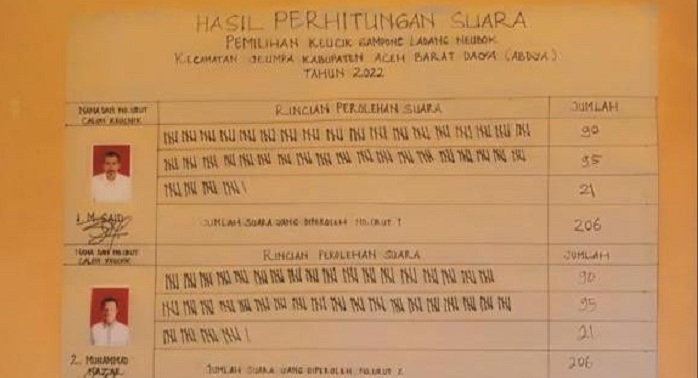 HASIL PERHITUNGAN SUARA
PEMILIHAN KEUCIK GAMPONG LADANG NEUBOK
KECAMATAN JEUMPA KABUPATEN ACEH BARAT DAYA (ABDYA)
TAHUN 2022
NAMA DAN NO. URUT CALON KEUCHIK
RINCIAN PEROLEHAN SUARA
JUMLAH
90
95
21
1. M. SAID
JUMLAH SUARA YANG DIPEROLEH NO. URUT 1
206
NAMA DAN NO. URUT CALON KEUCHIK
RINCIAN PEROLEHAN SUARA
JUMLAH
90
95
21
2. MUHAMMAD
JUMLAH SUARA YANG DIPEROLEH NO. URUT 2
206